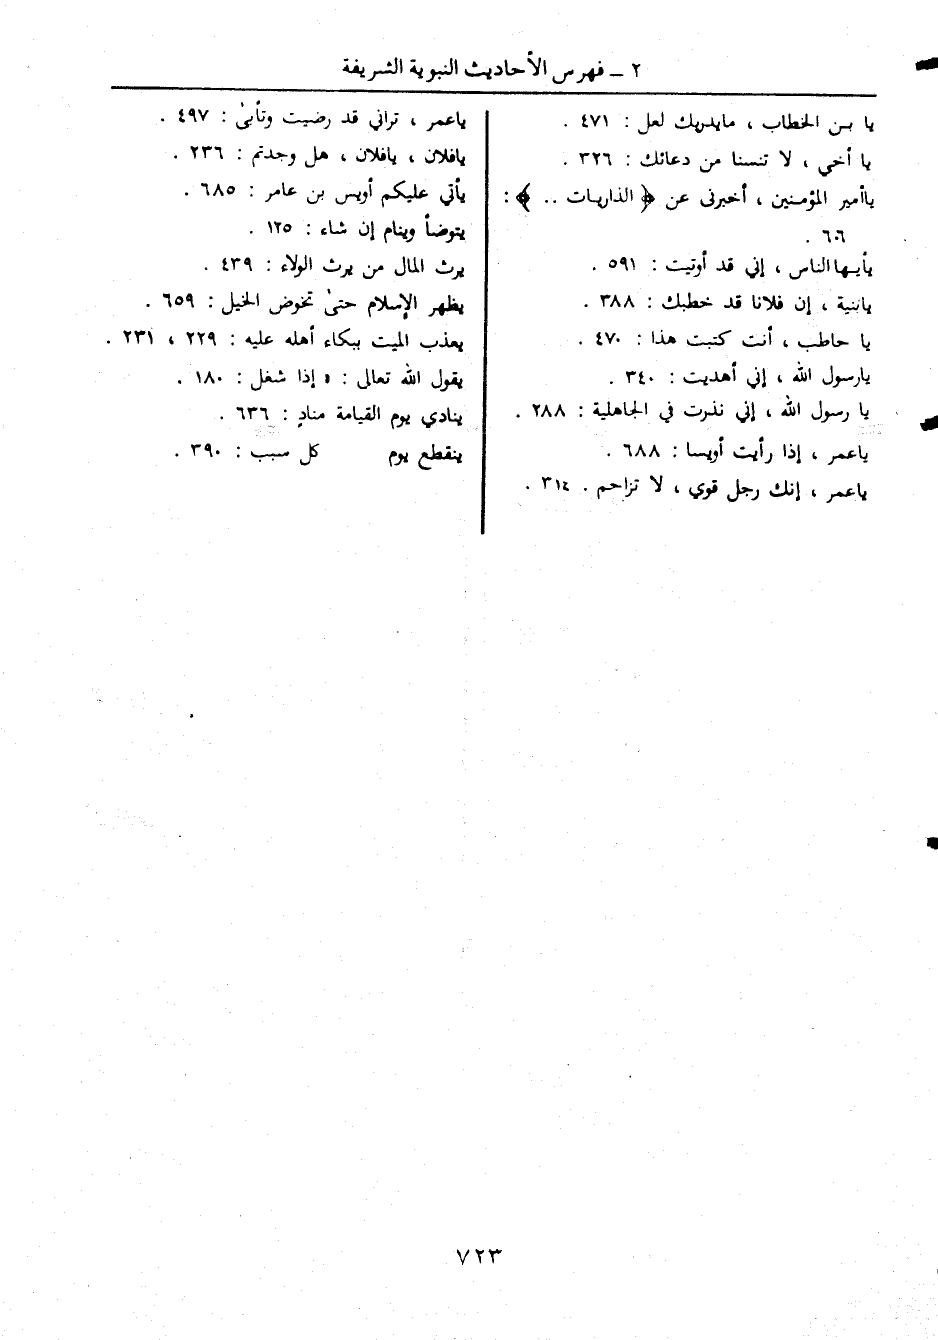 ٢ ـ فهرس الأحاديث النبوية الشريفة
يا بـن الخطاب ، مايدريك لعل : ٤٧١ .
يا أخي ، لا تنسنا من دعائك : ٣٢٦ .
ياأمير المؤمنين ، أخبرنى عن ﴿ الذاريات .. ﴾ :
٦٠٦ .
يأيـها الناس ، إني قد أوتيت : ٥٩١ .
يابنية ، إن فلانا قد خطبك : ٣٨٨ .
يا حاطب ، أنت كتبت هذا : ٤٧٠ .
يارسول الله ، إني أهديت : ٣٤٠ .
يا رسول الله ، إني نذرت في الجاهلية : ٢٨٨ .
ياعمر ، إذا رأيت أويسا : ٦٨٨ .
ياعمر ، إنك رجل قوي ، لا تزاحم . ٣١٤ .
ياعمر ، تراني قد رضيت وتأبىٰ : ٤٩٧ .
يافلان ، يافلان ، هل وجدتم : ٢٣٦ .
يأتي عليكم أويس بن عامر : ٦٨٥ .
يتوضأ وينام إن شاء : ١٢٥ .
يرث المال من يرث الولاء : ٤٣٩ .
يظهر الإسلام حتىٰ تخوض الخيل : ٦٥٩ .
يعذب الميت ببكاء أهله عليه : ٢٢٩ ، ٢٣١ .
يقول الله تعالى : « إذا شغل : ١٨٠ .
ينادي يوم القيامة منادٍ : ٦٣٦ .
ينقطع يوم كل سبب : ٣٩٠ .
٧٢٣